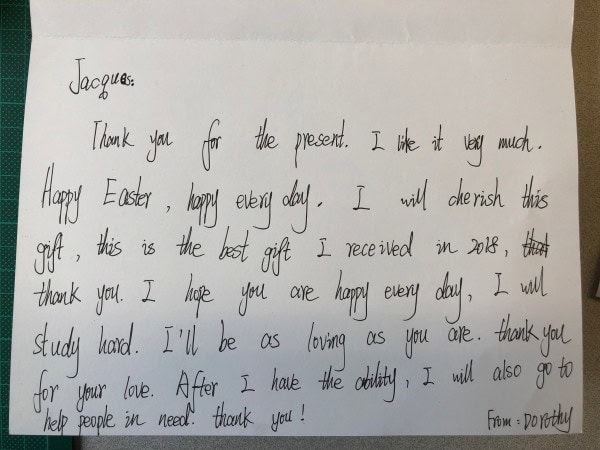 Jacques:
Thank you for the present. I like it very much.
Happy Easter, happy every day. I will cherish this
gift, this is the best gift I received in 2018, that
thank you. I hope you are happy every day, I will
study hard. I'll be as loving as you are. thank you
for your love. After I have the ability, I will also go to
help people in need. thank you!
From: Dorothy